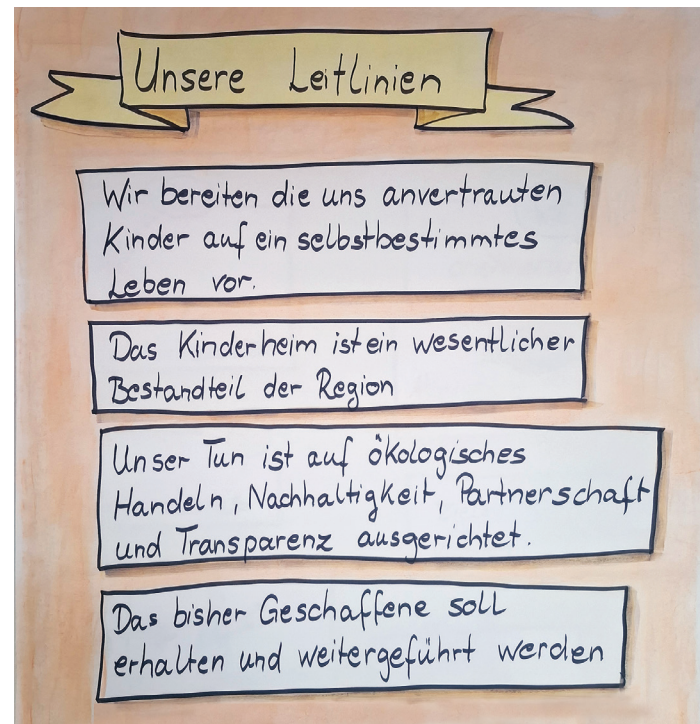 Unsere Leitlinien
Wir bereiten die uns anvertrauten
Kinder auf ein selbstbestimmtes
Leben vor.
Das Kinderheim ist ein wesentlicher
Bestandteil der Region
Unser Tun ist auf ökologisches
Handeln, Nachhaltigkeit, Partnerschaft
und Transparenz ausgerichtet.
Das bisher Geschaffene soll
erhalten und weitergeführt werden